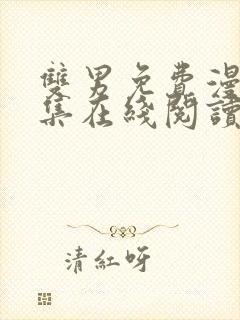 雙男免費漫
集在綫閱讀
清紅呀